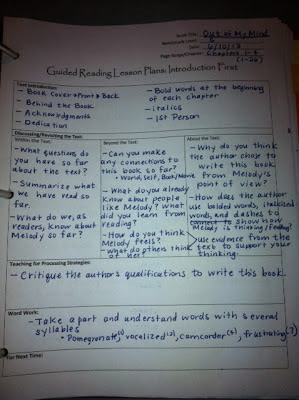 Book Title: Out of My Mind
Benchmark Level:
Date: 6/10/13
Page Range/Chapter: Chapters 1-5
(1-26)
Guided Reading Lesson Plans: Introduction First
Text Introduction:
- Book Cover → Front & Back
- Behind the Book
- Acknowledgments
- Dedication
- Bold words at the beginning
of each chapter
- italics
- 1st Person
Discussing/Revisiting the Text:
Within the Text:
- What questions do
you have so far
about the text?
- Summarize what
we have read so
far.
- What do we, as
readers, know about
Melody so far?
Beyond the Text:
- Can you make
any connections to
this book so far?
• World, Self, Book/Movie
- What do you already
know about people
like Melody? What
did you learn from
reading?
- How do you think
Melody feels?
- What do others think
of her?
About the Text:
- Why do you think
the author chose to
write this book
from Melody's
point of view?
- How does the author
use bolded words, italicized
words, and dashes to
show how
Melody is thinking/feeling?
use evidence from the
text to support your
thinking.
Teaching for Processing Strategies:
- Critique the author's qualifications to write this book.
Word Work:
- Take apart and understand words with several
syllables
• Pomegranate, vocalized, camcorder, frustrating
For Next Time: